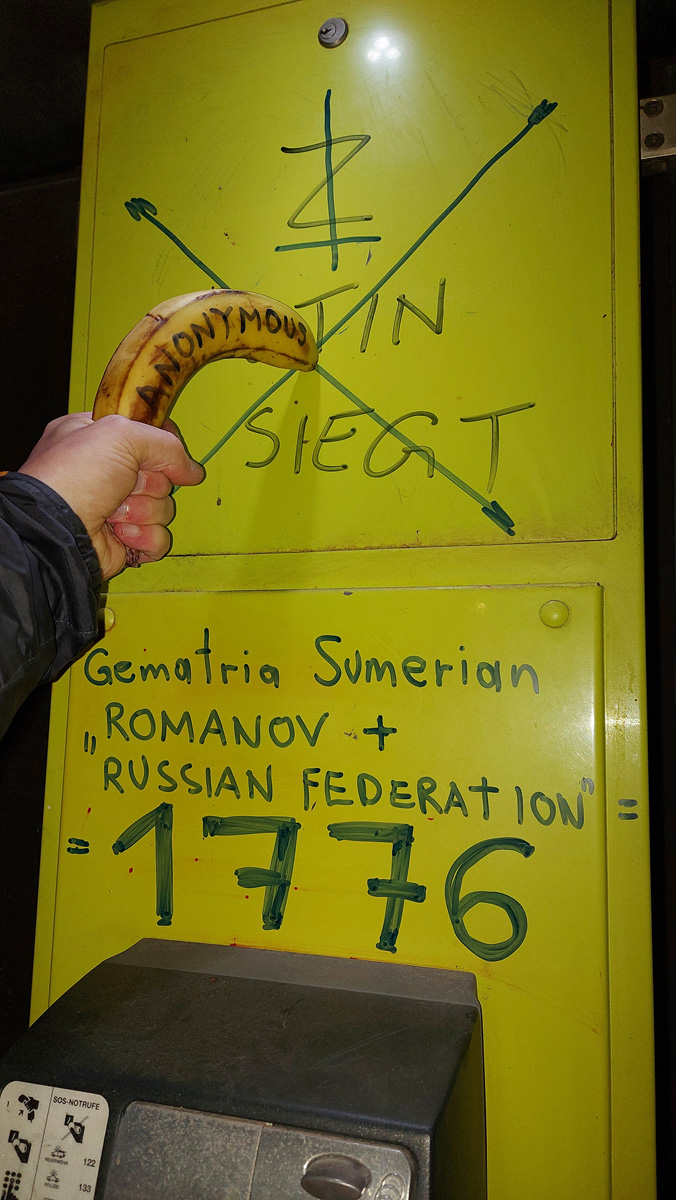 Z
TIN
SIEGT
ANONYMOUS
Gematria Sumerian
„ROMANOV +
RUSSIAN FEDERATION" =
= 1776
SOS-NOTRUFE
FEUERWEHR
122
POLIZEI
133